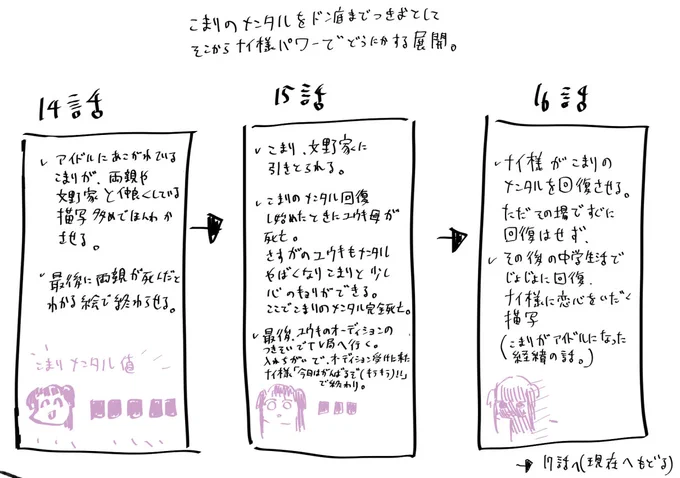 こまりのメンタルをドン底までつきおとして
そこからナイ様パワーでどうにかする展開。
14話
✓ アイドルにあこがれている
こまりが、両親や
文野家と仲良くしている
描写多めでほんわか
させる。
✓ 最後に両親が死んだと
わかる絵で終わらせる。
こまりメンタル値
15話
✓ こまり、文野家に
引きとられる。
✓ こまりのメンタル回復
し始めたときにユウキ母が
死亡。
さすがのユウキもメンタル
やばくなりこまりと少し
心のキョリができる。
ここでこまりのメンタル完全死亡。
✓ 最後、ユウキのオーディションの
つきそいでTV局へ行く。
入れちがいで、オーディション受けに来た
ナイ様「今日はがんばるぞ(キラキラ)!!」
で終わり。
16話
✓ ナイ様がこまりの
メンタルを回復させる。
ただその場ですぐに
回復はせず、
✓ その後の中学生活で
じょじょに回復、
ナイ様に恋心をいだく
描写
(こまりがアイドルになった
経緯の話。)
→ 17話へ(現在へもどる)